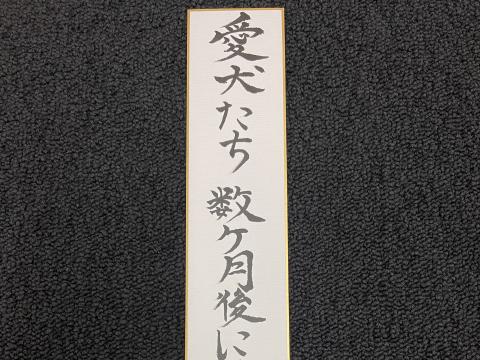 愛犬たち 数ケ月後に